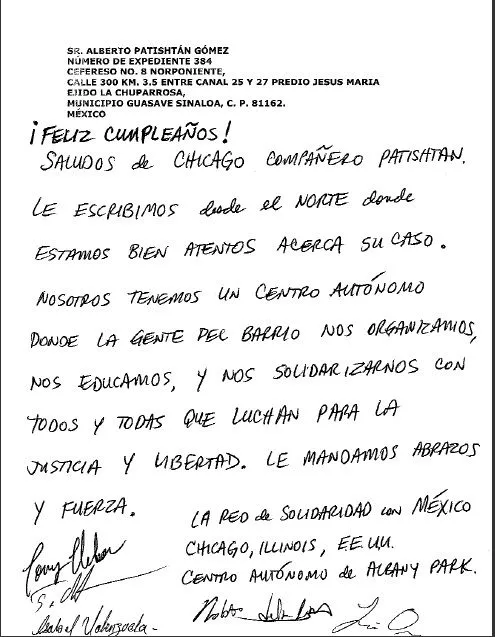 SR. ALBERTO PATISHTÁN GÓMEZ
NÚMERO DE EXPEDIENTE 384
CEFERESO NO. 8 NORPONIENTE,
CALLE 300 KM. 3.5 ENTRE CANAL 25 Y 27 PREDIO JESUS MARIA
EJIDO LA CHUPARROSA,
MUNICIPIO GUASAVE SINALOA, C. P. 81162.
MÉXICO
¡FELIZ CUMPLEAÑOS!
SALUDOS de CHICAGO COMPAÑERO PATISHTAN.
LE ESCRIBIMOS desde el NORTE donde
ESTAMOS BIEN ATENTOS ACERCA SU CASO.
NOSOTROS TENEMOS UN CENTRO AUTÓNOMO
DONDE LA GENTE DEL BARRIO NOS ORGANIZAMOS,
NOS EDUCAMOS, Y NOS SOLIDARIZARNOS CON
TODOS Y TODAS QUE LUCHAN PARA LA
JUSTICIA Y LIBERTAD. LE MANDAMOS ABRAZOS
Y FUERZA.
LA RED de SOLIDARIDAD con MÉXICO
CHICAGO, ILLINOIS, EE.UU.
CENTRO AUTÓNOMO de ALBANY PARK.
Isabel Valenzuela -